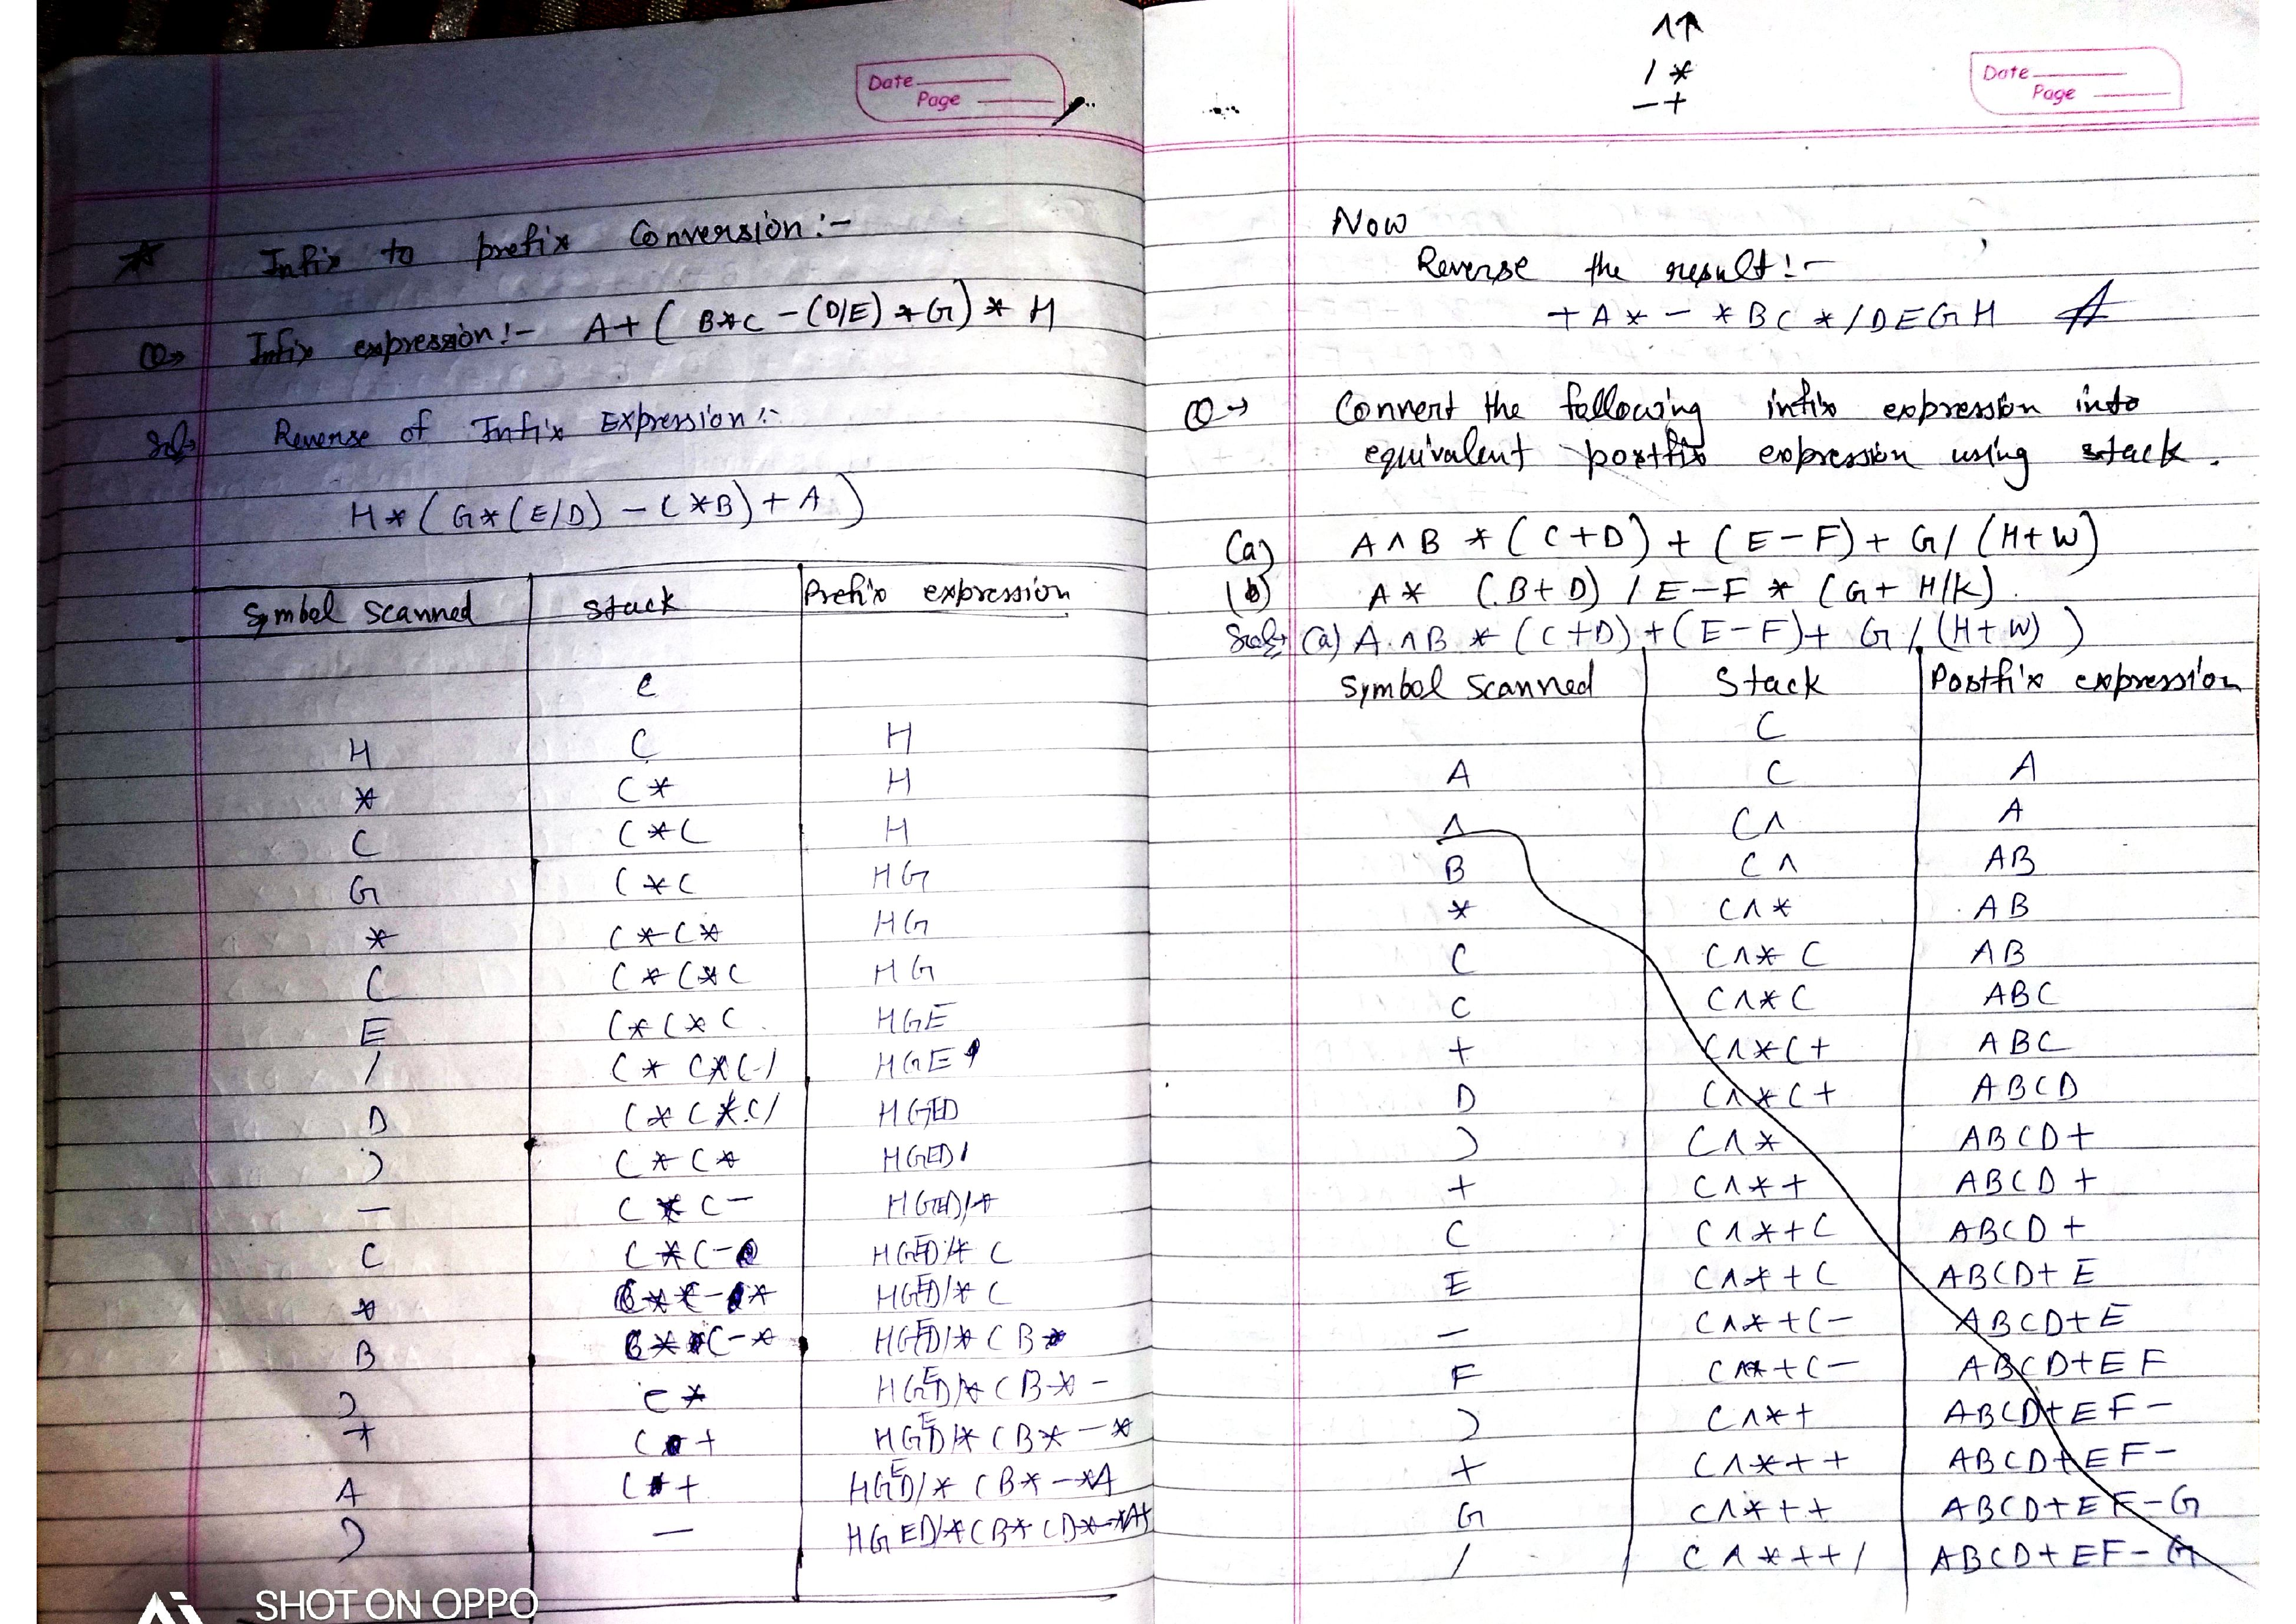 Date
Page
★ Infix to prefix Conversion:-
Q→ Infix expression:- A+(B*C-(D/E)*G)*H
Sol→ Reverse of Infix Expression:-
H*(G*(E/D)-C*B)+A)
Symbol Scanned Stack Prefix expression
(
H ( H
* (* H
( (*( H
G (*( HG
* (*(* HG
( (*(*( HG
E (*(*( HGE
/ (*(*(/ HGE
D (*(*(/ HGED
) (*(* HGED/
- (*(- HGED/*
C (*(- HGED/*C
* (*(-* HGED/*C
B (*(-* HGED/*CB
) (* HGED/*CB*-
+ (+ HGED/*CB*-*
A (+ HGED/*CB*-*A
) -
SHOT ON OPPO
^↑
/ *
- +
Date
Page
Now
Reverse the result:-
+A*-*BC*/DEGH
Q→ Convert the following infix expression into
equivalent postfix expression using stack.
(a) A^B*(C+D)+(E-F)+G/(H+W)
(b) A*(B+D)/E-F*(G+H/K).
Sol→ (a) A^B*(C+D)+(E-F)+G/(H+W))
Symbol Scanned Stack Postfix expression
(
A ( A
^ (^ A
B (^ AB
* (^* AB
( (^*( AB
C (^*( ABC
+ (^*(+ ABC
D (^*(+ ABCD
) (^* ABCD+
+ (^*+ ABCD+
( (^*+( ABCD+
E (^*+( ABCD+E
- (^*+(- ABCD+E
F (^*+(- ABCD+EF
) (^*+ ABCD+EF-
+ (^*++ ABCD+EF-
G (^*++ ABCD+EF-G
/ (^*++/ ABCD+EF-G